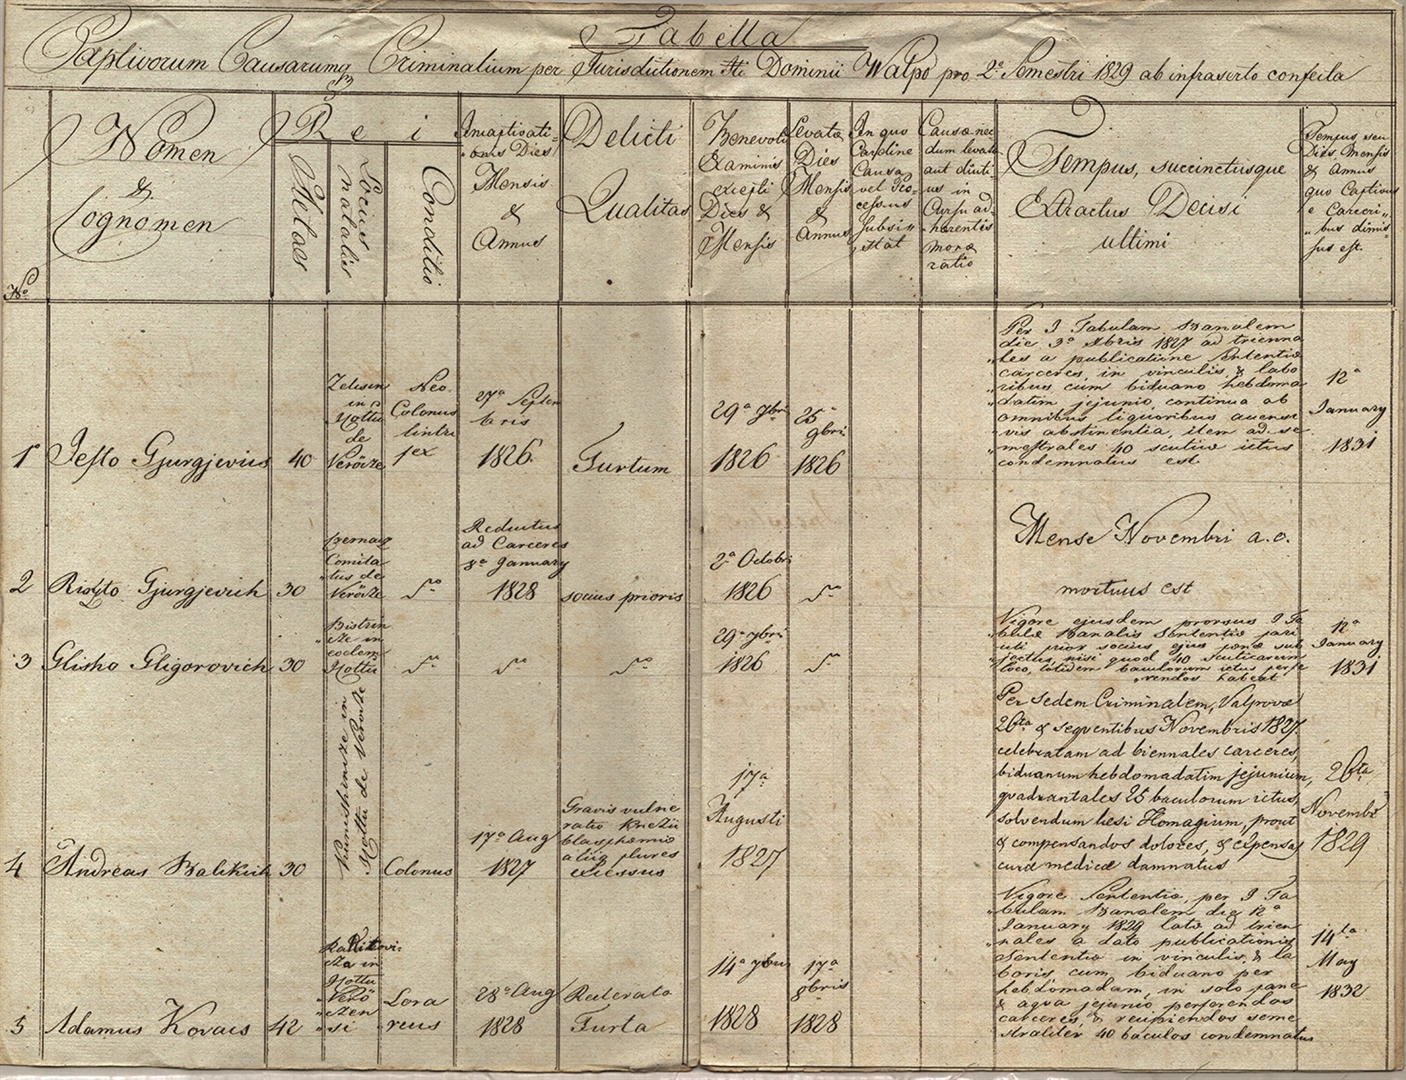 Tabella
Captivorum Causarumq Criminalium per Jurisdictionem Itti Dominii Walpo pro 2º Semestri 1829 ab infraserto confecta
Nº
Nomen
&
Cognomen
Rei
Aetas
Locus
natalis
Conditio
Incaptivati-
onis Dies
Mensis
&
Annus
Delicti
Qualitas
Benevoli
Examinis
excepti
Dies &
Mensis
Levatae
Dies
Mensis
&
Annus
In quo
Cardine
Causa
vel Pro
cessus
subsi-
stat
Causae nec
dum levatae
aut diuti
us in
Cursu ad-
haerentis
morae
ratio
Tempus, succinctusque
Extractus Decisi
ultimi
Tempus seu
Dies Mensis
& Annus
quo Captivus
e Carceri-
bus dimis
sus est.
1º
Jefto Gjurgjevics
40
in
Kottu
de
Verőcze
Neo
Colonus
27ª Septem
bris
1826
Furtum
29ª 9bri
1826
25ª
9bri
1826
Per I Tabulam Banalem
die 3ª Xbris 1827 ad trienna
les a publicatione Sententiae
carceres, in vinculis, & labo
ribus cum biduano hebdoma
datim jejunio, continua ab
omnibus liquoribus
abstinentia, item ad se
mestrales 40 scuticae ictus
condemnatus est
12ª
January
1831
2
Gjurgjevich
30
Comita
tus de
Verőcze
Dº
Reductus
ad Carceres
8ª January
1828
socius prioris
2ª Octobri
1826
Dº
Mense Novembri a.c.
mortuus est
3
Glisho Gligorovich
30
in
eodem
Kottu
Dº
Dº
Dº
29ª 9bri
1826
Dº
Vigore ejusdem prorsus I Ta
bulae Banalis Sententiae pari
uti prior socius ejus poenae sub
jectus, nisi quod 40 scuticarum
loco, totidem baculorum ictus perfe
rendos habeat
12ª
January
1831
4
Andreas
30
in
Kottu de Verőcze
Colonus
17ª Aug
1827
Gravis vulne
ratio
blasphemia
aliiq plures
excessus
17ª
Augusti
1827
Per Sedem Criminalem, Valpovae
26ta & seqventibus Novembris 1827
celebratam ad biennales carceres,
biduanum hebdomadatim jejunium,
quadrantales 25 baculorum ictus,
solvendum laesi Homagium, prout
& compensandos dolores, & expensas
curae medicae damnatus
26ta
Novembr
1829
5
Adamus Kovacs
42
in
Kottu
Verő
czen
si
Lora
reus
28ª Aug
1828
Reiterata
Furta
14ª 7bris
1828
17ª
9bris
1828
Vigore Sententiae, per I Ta
bulam Banalem die 12ª
January 1829 latae ad trien
nales a dato publicationis
Sententiae in vinculis, & la
boris, cum biduano per
hebdomadam, in solo pane
& aqua jejunio, perferendos
carceres, & recipiendos seme
straliter 40 baculos condemnatus
14ta
May
1832